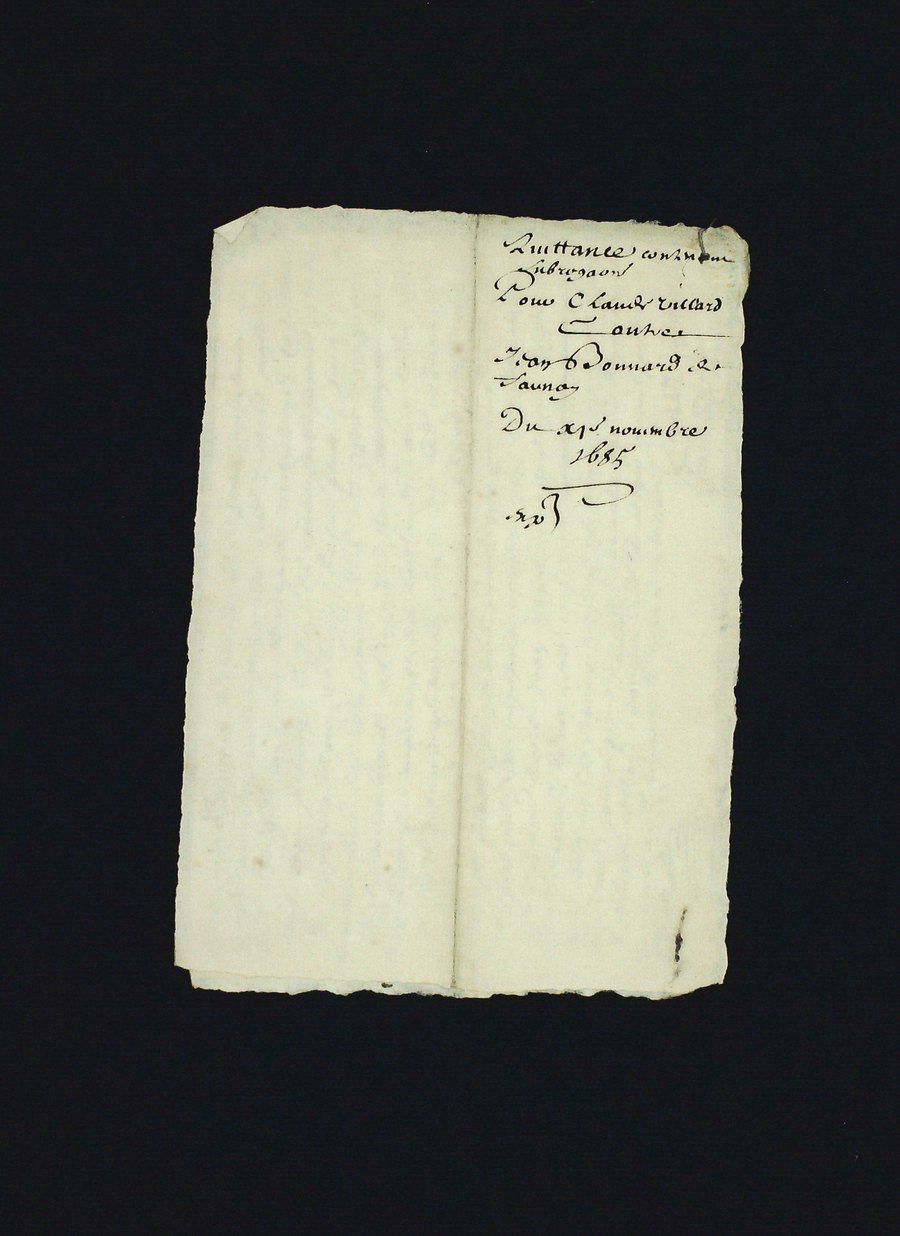 Quittance contenant
subrogaon
Pour Claude Villard
Contre
Jean Bonnard de
Du xje nouembre
1685
exp